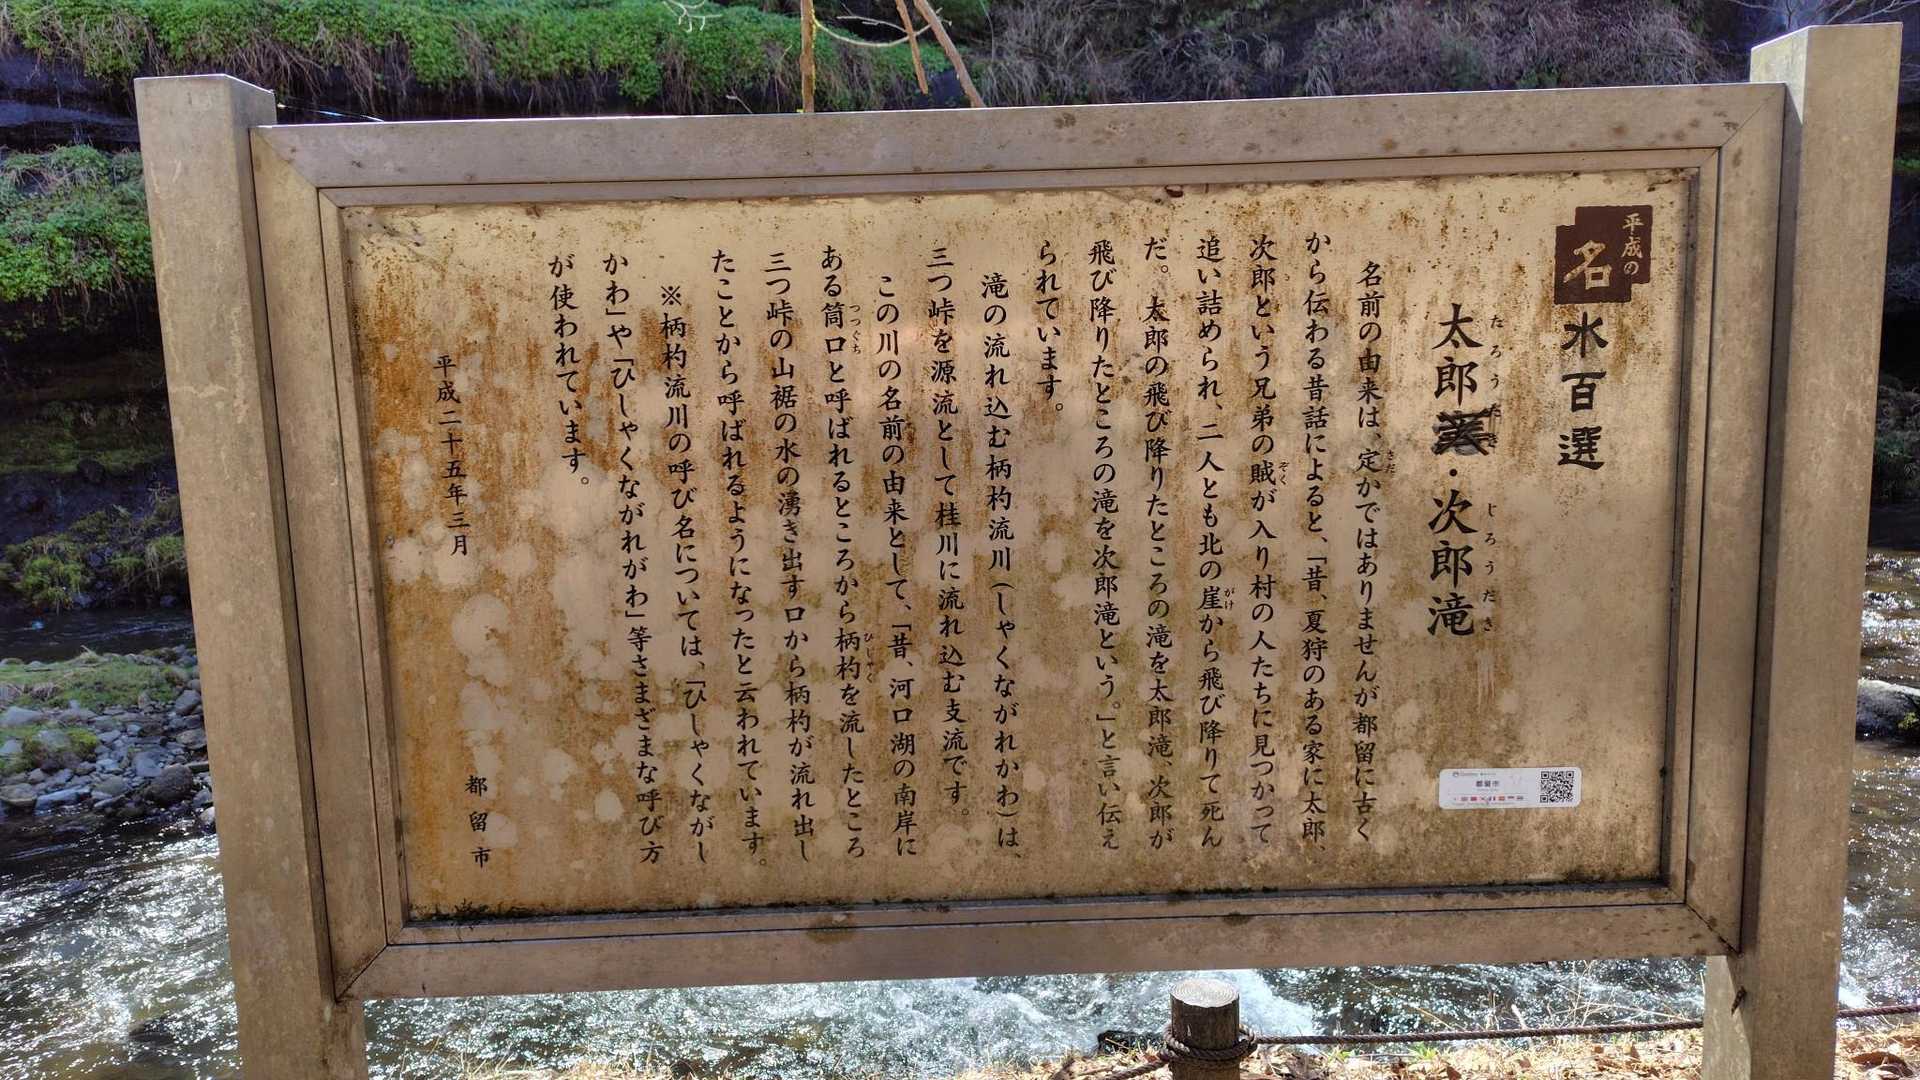 平成の
名水百選
太郎・次郎滝
たろうたき じろうだき
名前の由来は、定かではありませんが都留に古く
から伝わる昔話によると、「昔、夏狩のある家に太郎、
次郎という兄弟の賊が入り村の人たちに見つかって
追い詰められ、二人とも北の崖から飛び降りて死ん
だ。太郎の飛び降りたところの滝を太郎滝、次郎が
飛び降りたところの滝を次郎滝という。」と言い伝え
られています。
滝の流れ込む柄杓流川(しゃくながれかわ)は、
三つ峠を源流として桂川に流れ込む支流です。
この川の名前の由来として、「昔、河口湖の南岸に
ある筒口と呼ばれるところから柄杓を流したところ
三つ峠の山裾の水の湧き出す口から柄杓が流れ出し
たことから呼ばれるようになったと云われています。
※柄杓流川の呼び名については、「ひしゃくながし
かわ」や「ひしゃくながれがわ」等さまざまな呼び方
が使われています。
平成二十五年三月
都留市
都留市